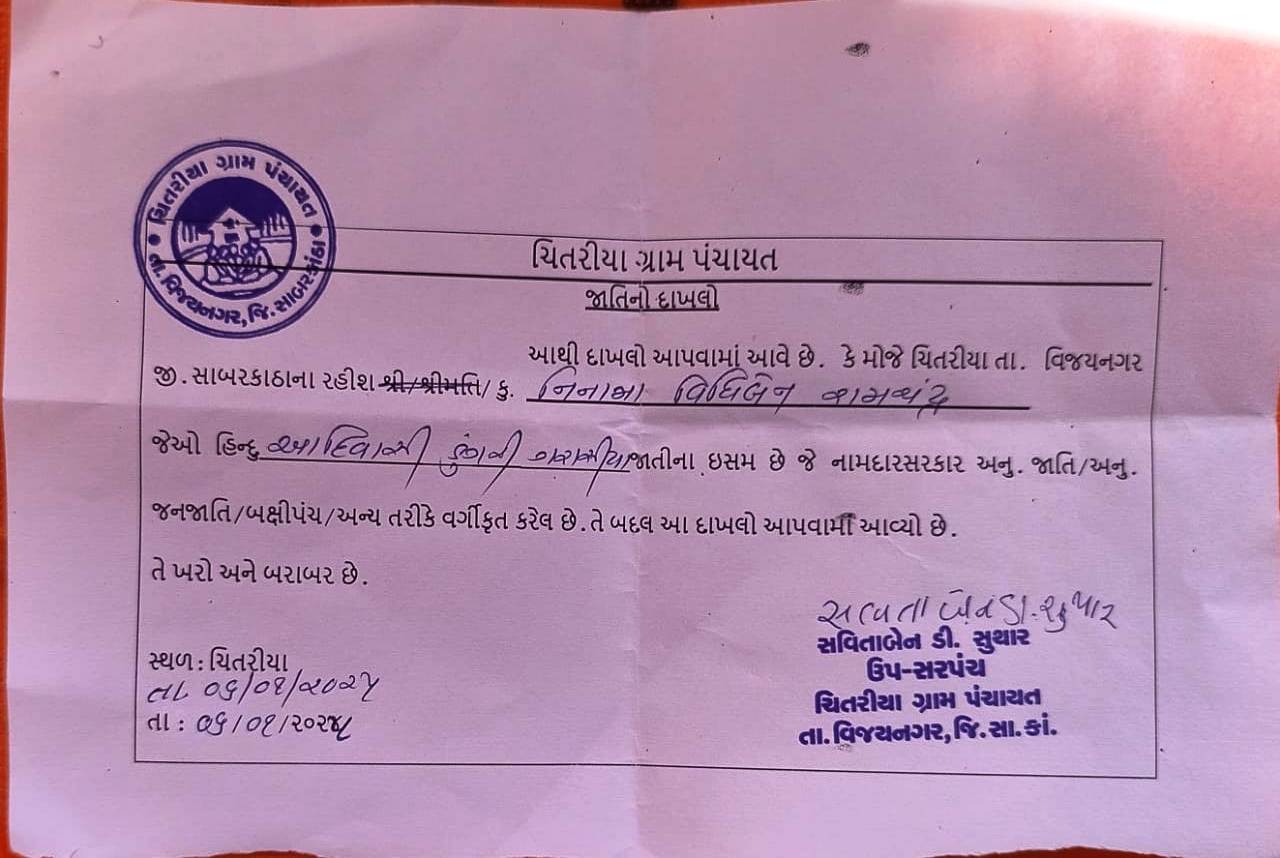 ચિતરીયા ગ્રામ પંચાયત
તા. વિજયનગર, જિ. સાબરકાંઠા
ચિતરીયા ગ્રામ પંચાયત
જાતિનો દાખલો
આથી દાખલો આપવામાં આવે છે. કે મોજે ચિતરીયા તા. વિજયનગર
જી. સાબરકાઠાના રહીશ શ્રી/શ્રીમતિ/ કુ. નિનામા વિધિબેન રામચંદ્ર
જેઓ હિન્દુ આદિવાસી ડુંગરી ગરાસીયા જાતીના ઇસમ છે જે નામદારસરકાર અનુ. જાતિ/અનુ.
જનજાતિ/બક્ષીપંચ/અન્ય તરીકે વર્ગીકૃત કરેલ છે. તે બદલ આ દાખલો આપવામાં આવ્યો છે.
તે ખરો અને બરાબર છે.
સવિતાબેન ડી. સુથાર
સવિતાબેન ડી. સુથાર
ઉપ-સરપંચ
ચિતરીયા ગ્રામ પંચાયત
તા. વિજયનગર, જિ. સા. કાં.
સ્થળ: ચિતરીયા
તા. ૦૬/૦૧/૨૦૨૫
તા : ૦૬/૦૧/૨૦૨૫